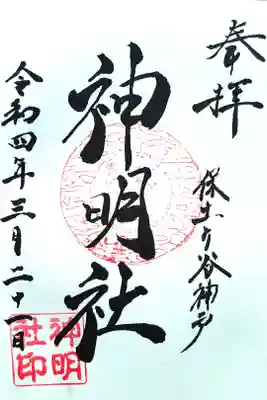 奉拝
保土ケ谷神戸
神明社
令和四年三月二十一日
神明
社印